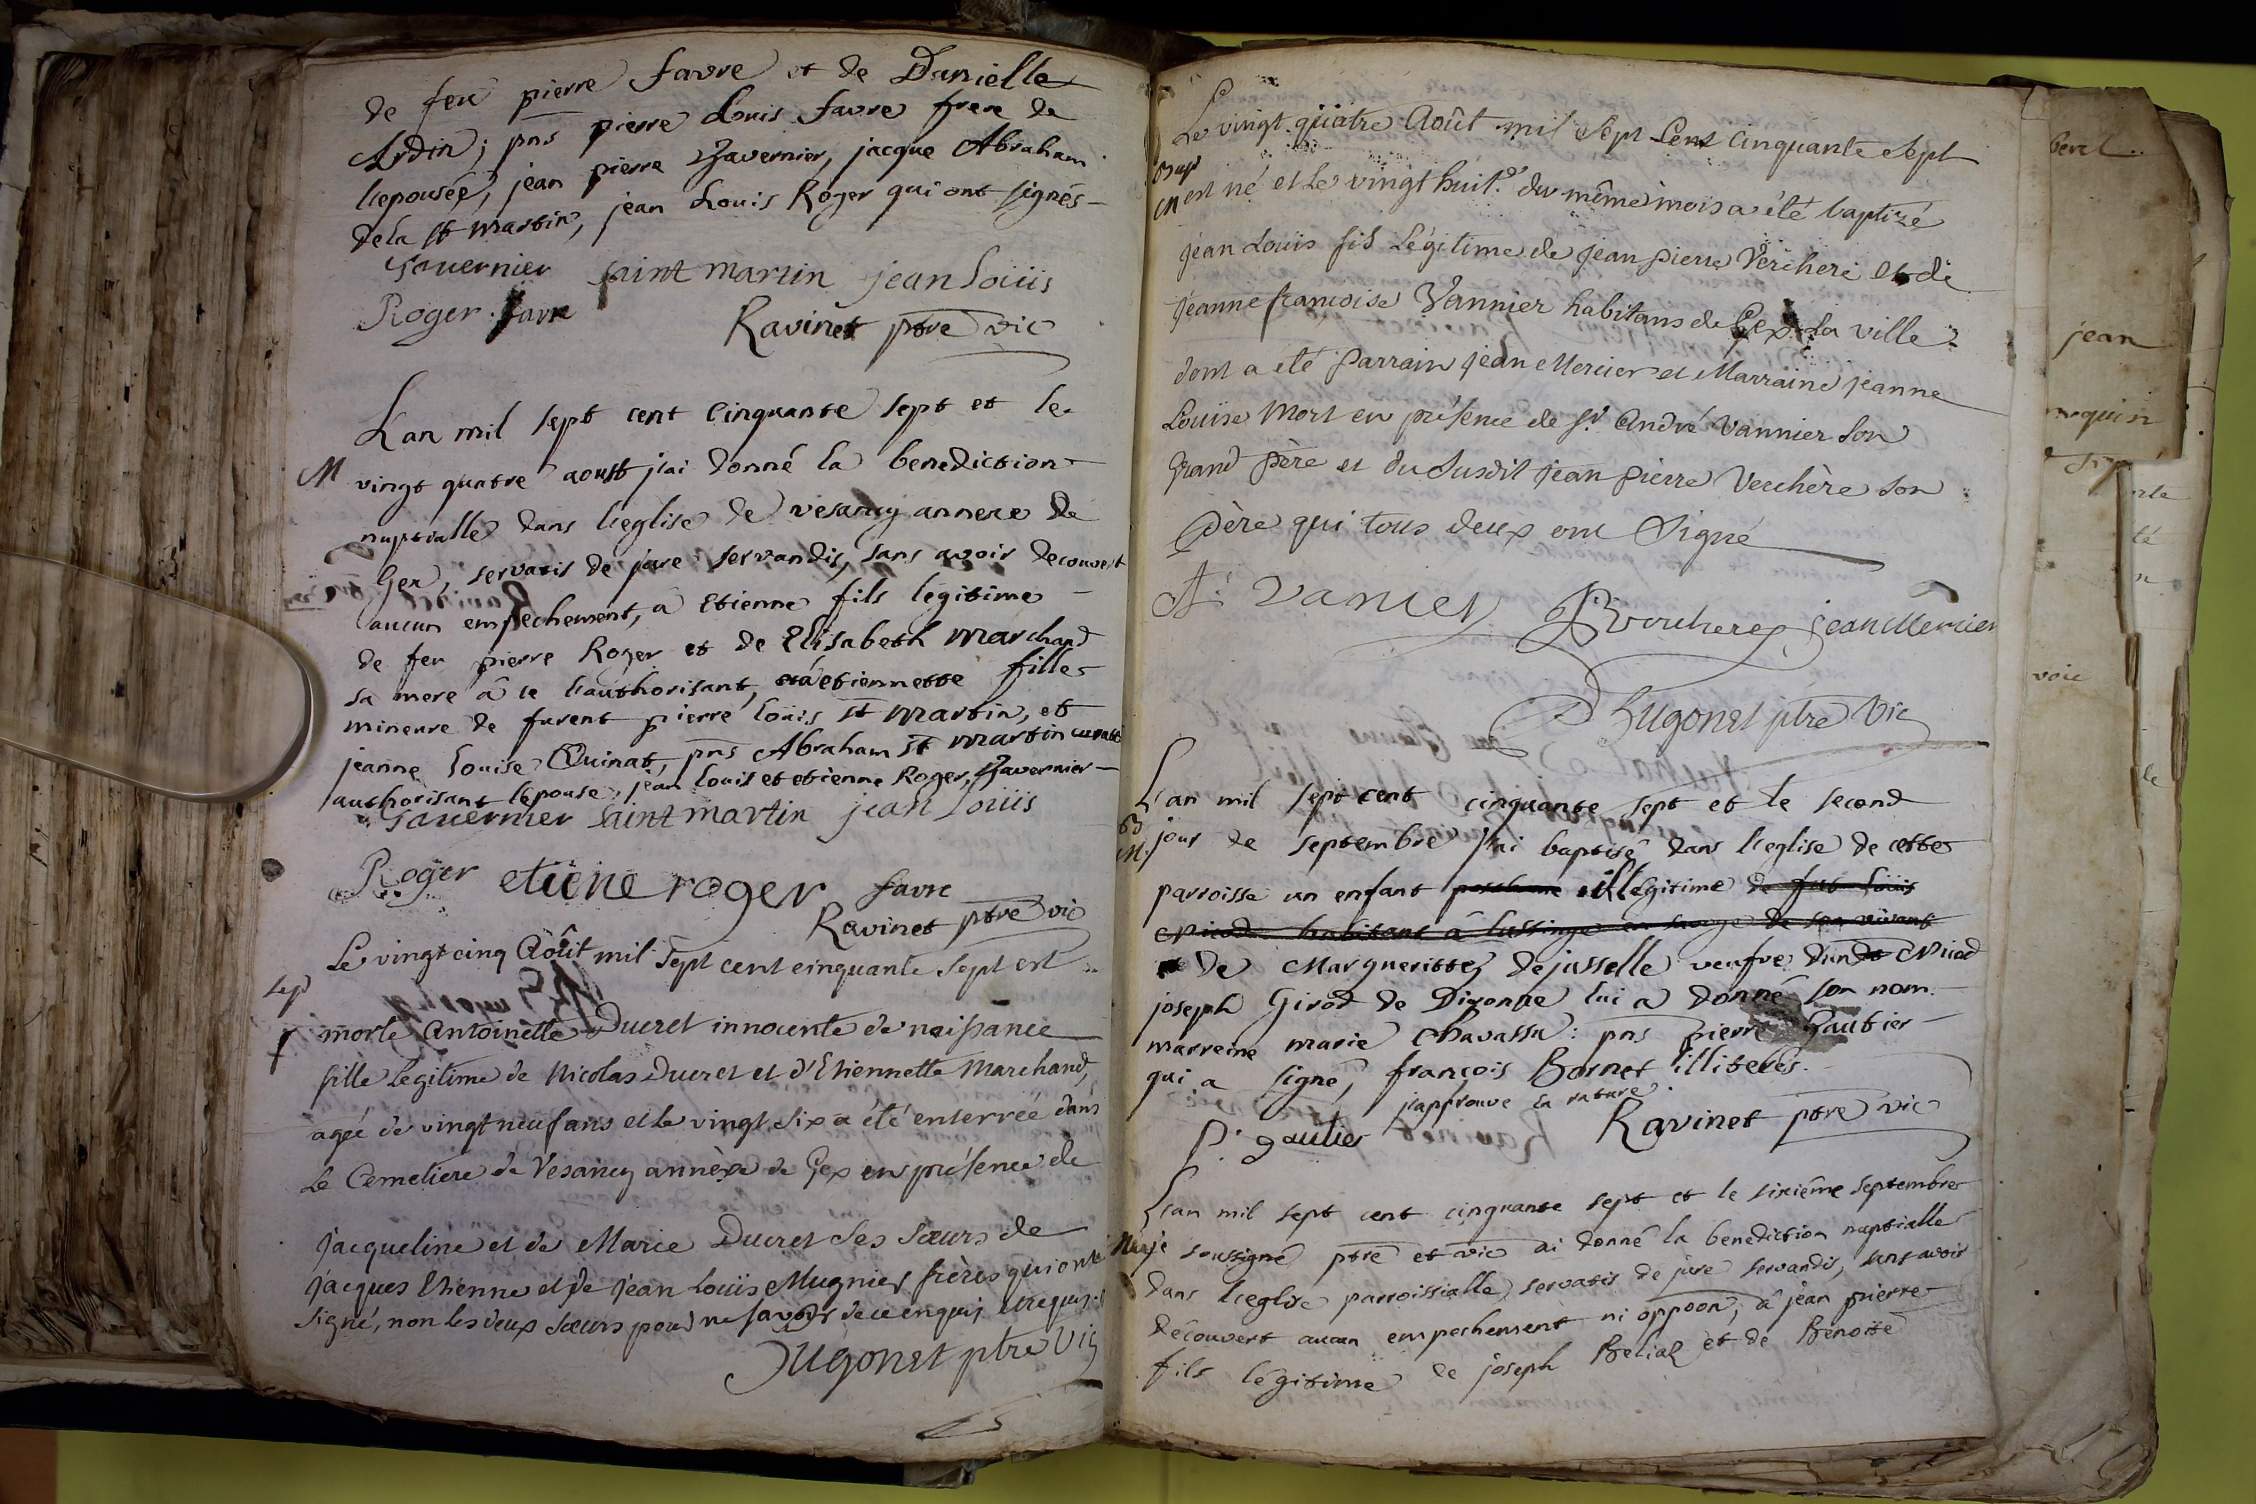 de feu pierre favre et de Danielle
Ardin; pns pierre Louis favre frere de
l'epousée, jean pierre Zavernier, jacque Abraham
dela st martin, jean Louis Roger qui ont signés
saint martin jean Loüis
Roger favre
Ravinet ptre vic
L'an mil sept cent cinquante sept et le
M
vingt quatre aoust j'ai donné la benediction
nuptialle dans l'eglise de vesancy annexe de
Gex, servatis de jure servandis, sans avoir decouvert
aucun empechement, a Etienne fils legitime
de feu pierre Roger et de Elisabeth marchand
sa mere â ce l'authorisant, et a etiennette fille
mineure de furent pierre loüis st martin, et
jeanne louise Quinat, pns Abraham st martin
authorisant l'epouse, jean louis et etienne Roger, Zavernier
saint martin jean Loüis
Roger etiene roger favre
Ravinet ptre vic
Le vingt cinq Août mil Sept cent cinquante Sept est
Sep
morte Antoinette Ducret innocente de naissance
fille Legitime de Nicolas Ducret et d'Etiennette Marchand,
agée de vingt neuf ans et le vingt six a été enterrée dans
Le Cemetiere de Vesancy annèxe de Gex en présence de
jacqueline et de Marie Ducret Ses Sœurs de
jacques Etienne et de jean Loüis Mugnier frères qui ont
signé, non les deux Sœurs pour ne savoir de ce enquis
Hugonet ptre Vic
Le vingt quatre Août mil Sept Cent Cinquante Sept
Bap
est né et Le vingt huit.e du même mois a été baptizé
jean Loüis fils Légitime de jean pierre Verchere et de
jeanne françoise Vannier habitans de Gex la ville
dont a été parrain jean Mercier et Marraine jeanne
Louïse Mort en présence de Sr. André Vannier Son
Grand Père et du Susdit jean pierre Verchère Son
Père qui tous deux ont Signé
Ad. Vanier Verchere jean Mercier
Hugonet ptre Vic
L'an mil sept cent cinquante sept et le second
B
jour de septembre j'ai baptisé dans l'eglise de cette
parroisse un enfant illegitime de feu Loüis
Nicod habitant â Lussinge en savoye de son vivant
de Margueritte dejusselle veufve Nicod
joseph Girod de Divonne lui a donné son nom.
marreine marie Chavassu: pns pierre Gautier
qui a signé, françois Bornet illiterés.
j'approuve la rature
P. gautier Ravinet ptre vic
L'an mil sept cent cinquante sept et le sixiême septembre
je soussigné ptre et vic ai donné la benediction nuptialle
dans l'eglise parroissialle, servatis de jure servandis, sans avoir
découvert aucun empechement ni oppoon, â jean pierre
fils légitime de joseph et de Benoite
beret
jean
voic